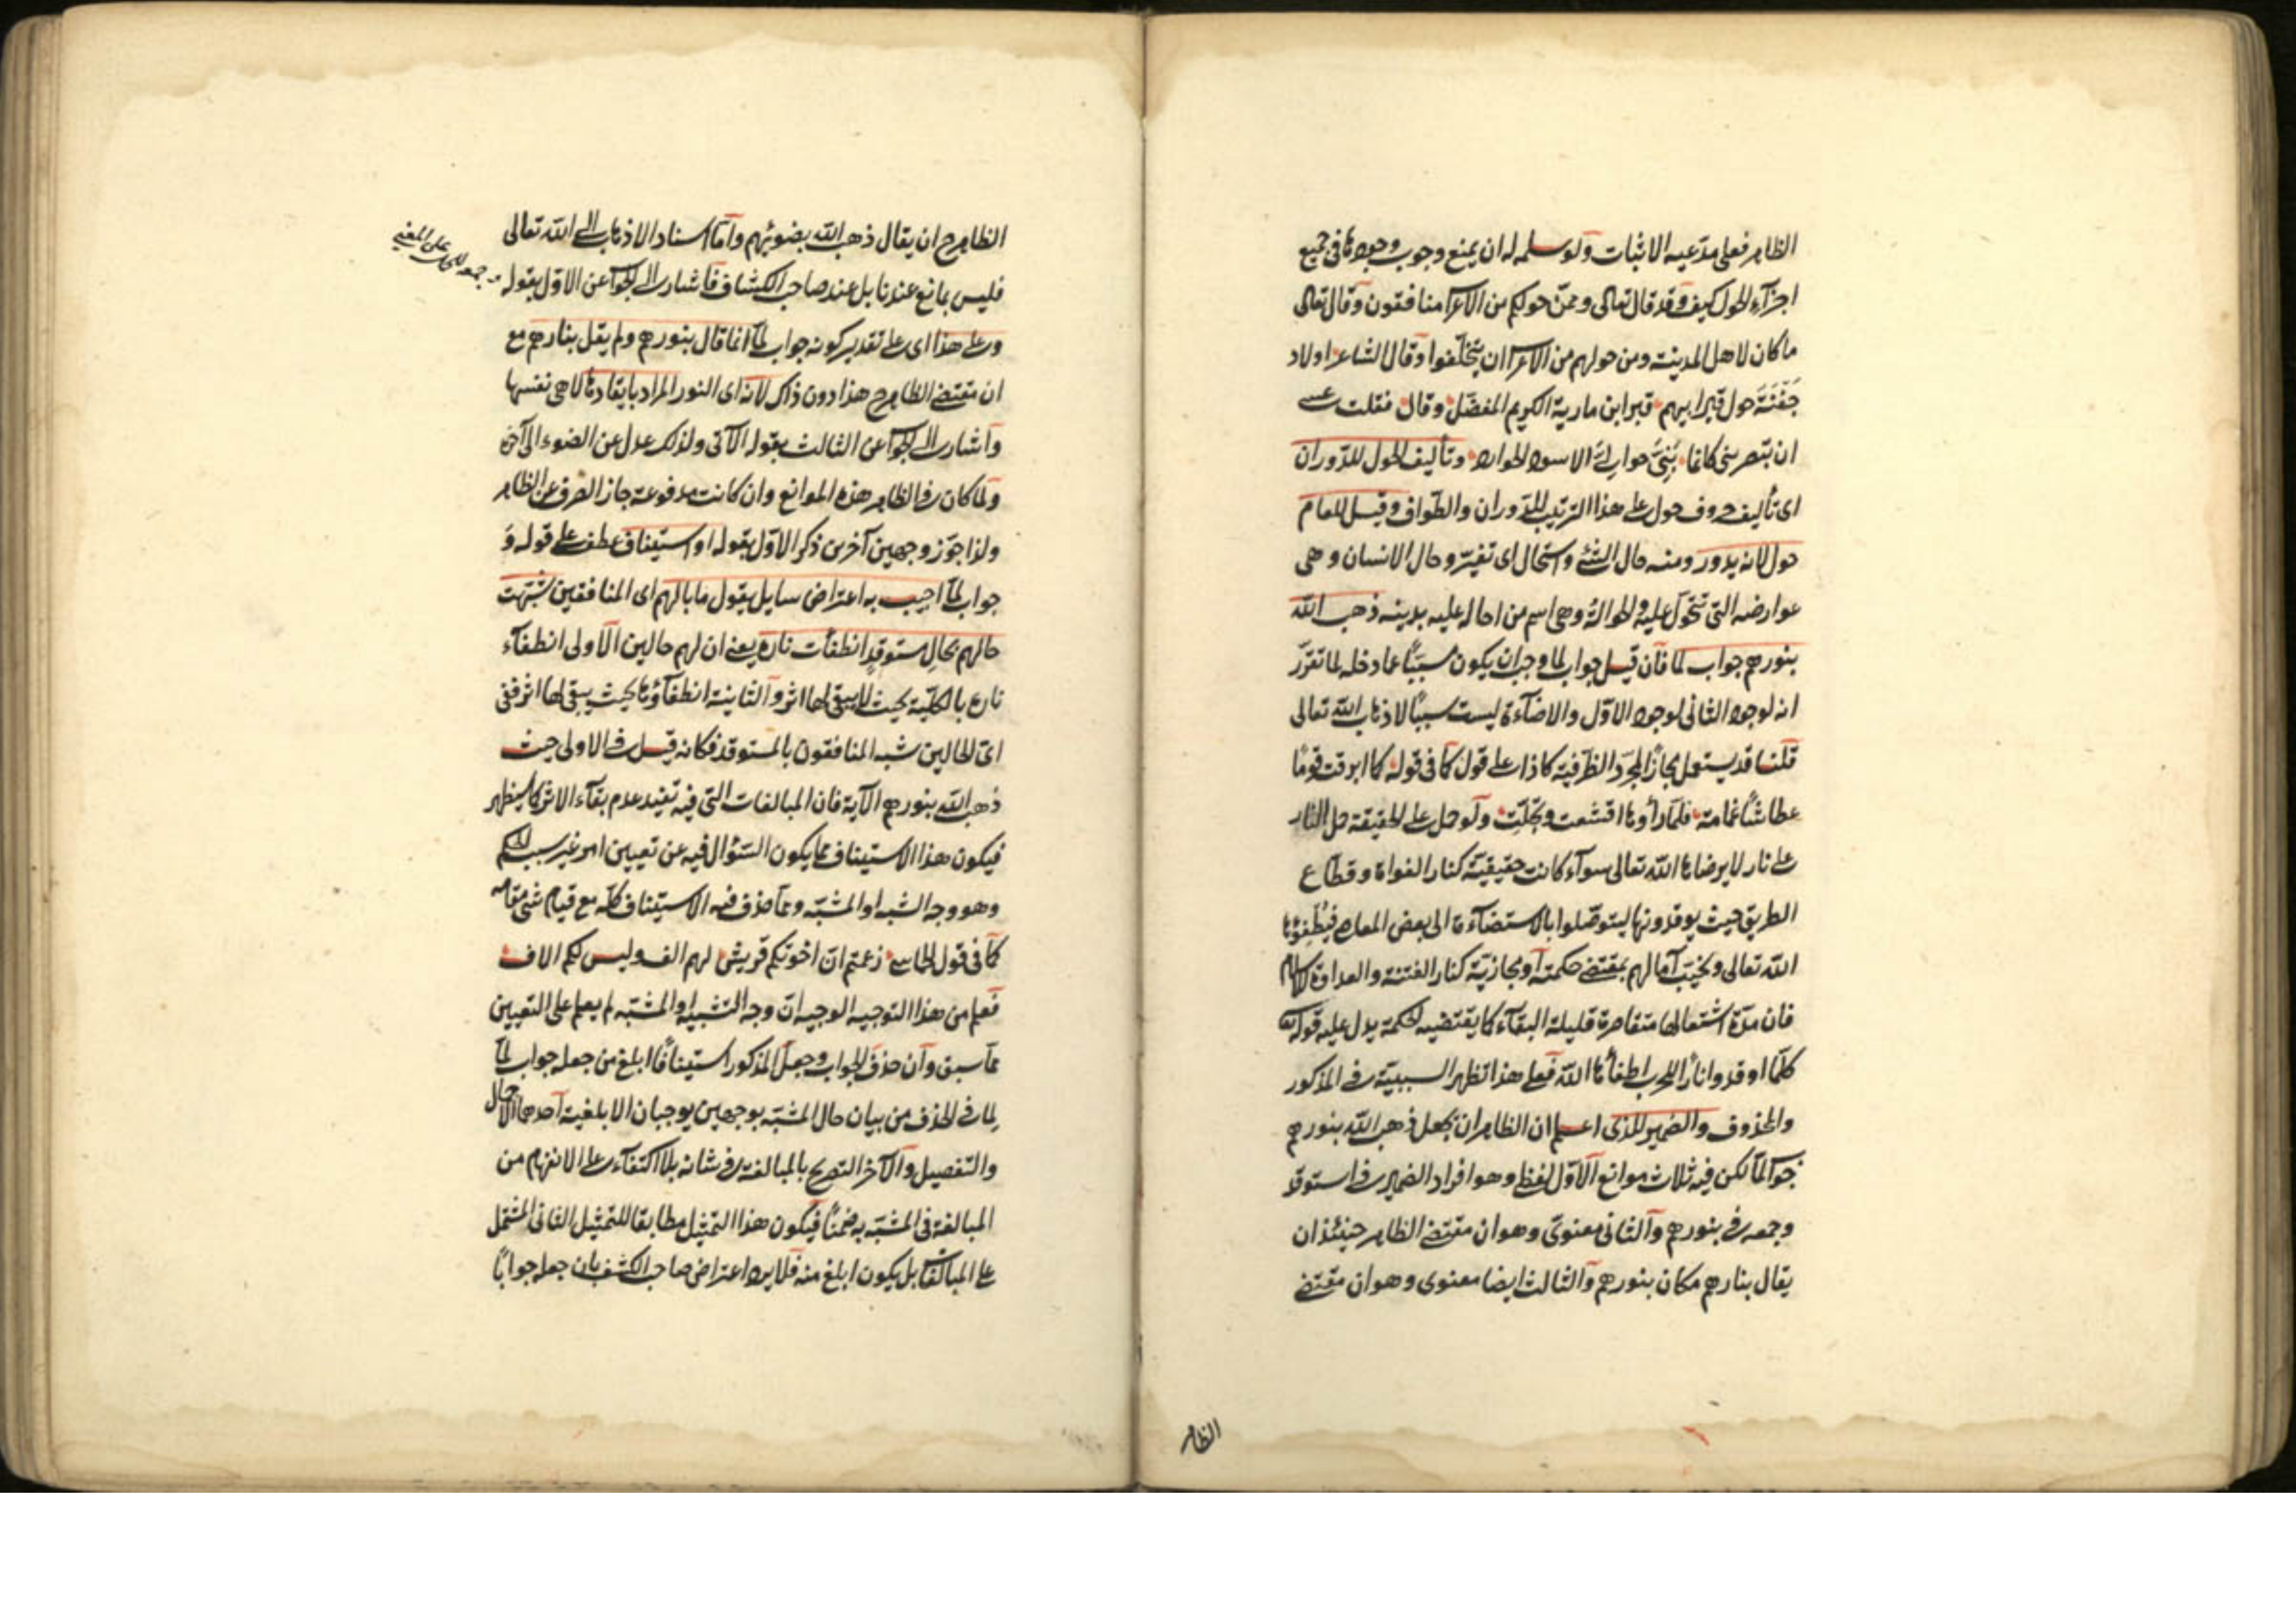 الظاهر فعلى مدعيه الاثبات ولو سلم له ان يمنع وجوب وجودها في جميع
اجزاء الحول كيف وقد قال تعالى وممن حولكم من الاعراب منافقون وقال تعالى
ما كان لاهل المدينة ومن حولهم من الاعراب ان يتخلفوا وقال الشاعر اولاد
جَفْنَةَ حول قبر ابيهم قبر ابن مارية الكريم المفضل وقال فقلت عسى
ان تبصريني كانما بَنِيَّ حواليَّ الاسود الحوارد وتأليف الحول للدوران
اى تأليف حروف حول على هذا الترتيب للدوران والطواف وقيل للعام
حول لانه يدور ومنه حال الشئ واستحال اى تغير وحال الانسان وهى
عوارضه التى تتحول عليه والحوالة وهى اسم من احال عليه بدينه ذهب الله
بنورهم جواب لما فان قيل جواب لما وجب ان يكون مسببًا عما دخله لما تقرر
انه لوجود الثانى لوجود الاول والاضاءة ليست سببًا لاذهاب الله تعالى
قلنا قد يستعمل مجازًا لمجرد الظرفية كاذا على قول كما فى قوله كما ابرقت قومًا
عطاشًا غمامة فلما رأوها اقشعت وتجلت ولو حمل على الحقيقة حمل النار
على نار لا يرضاها الله تعالى سواء كانت حقيقية كنار الغواة وقطاع
الطريق حيث يوقدونها ليتوصلوا بالاستضاءة الى بعض المعاصى فيطفؤها
الله تعالى ويخيب آمالهم بمقتضى حكمته او مجازية كنار الفتنة والعداوة للاسلام
فان مدة اشتعالها متقاصرة قليلة البقاء كما يقتضيه الحكمة يدل عليه قوله تعالى
كلما اوقدوا نارًا للحرب اطفأها الله فعلى هذا تظهر السببية فى المذكور
والمحذوف والضمير للذى اعلم ان الظاهر ان يجعل ذهب الله بنورهم
جواب لما لكن فيه ثلاث موانع الاول لفظى وهو افراد الضمير فى استوقد
وجمعه فى بنورهم والثانى معنوى وهو ان مقتضى الظاهر حينئذ ان
يقال بنارهم مكان بنورهم والثالث ايضا معنوى وهو ان مقتضى
الظاهر
الظاهر ح ان يقال ذهب الله بضوئهم واما اسناد الاذهاب الى الله تعالى
فليس بمانع عندنا بل عند صاحب الكشاف فاشار الى الجواب عن الاول بقوله
وجمعه للحمل على المعنى
وعلى هذا اى على تقدير كونه جواب لما انما قال بنورهم ولم يقل بنارهم مع
ان مقتضى الظاهر ح هذا دون ذاك لانه اى النور المراد بايقادها لا هى نفسها
واشار الى الجواب عن الثالث بقوله الآتى ولذلك عدل عن الضوء الى آخره
ولما كان فى الظاهر هذه الموانع وان كانت مدفوعة جاز الصرف عن الظاهر
ولذا جوز وجهين آخرين ذكر الاول بقوله او استيناف عطف على قوله وَ
جواب لما اجيب به اعتراض سايل يقول ما بالهم اى المنافقين شبهت
حالهم بحال مستوقد انطفأت ناره يعنى ان لهم حالين الاولى انطفاء
ناره بالكلية بحيث لا يبقى لها اثر والثانية انطفاؤها بحيث يبقى لها اثر ففى
اى الحالين شبه المنافقون بالمستوقد فكانه قيل فى الاولى حيث
ذهب الله بنورهم الآية فان المبالغات التى فيه تفيد عدم بقاء الاثر كما سيظهر
فيكون هذا الاستيناف مما يكون السؤال فيه عن تعيين امر غير سبب الحكم
وهو وجه الشبه او المشبه ومما حذف فيه الاستيناف كله مع قيام شئ مقامه
كما فى قول الحماسى زعمتم ان اخوتكم قريش لهم الف وليس لكم الاف
فعلم من هذا التوجيه الوجيه ان وجه التشبيه او المشبه لم يعلم على التعيين
مما سبق وان حذف الجواب وجعل المذكور استينافًا ابلغ من جعله جواب لما
لما فى الحذف من بيان حال المشبه بوجهين يوجبان الابلغية احدهما الاجمال
والتفصيل والآخر التصريح بالمبالغة فى شانه بلا اكتفاء على الانفهام من
المبالغة فى المشبه به ضمنًا فيكون هذا التمثيل مطابقا للتمثيل الثانى المشتمل
على المبالغات بل يكون ابلغ منه فلا يرد اعتراض صاحب الكشف بان جعله جوابًا